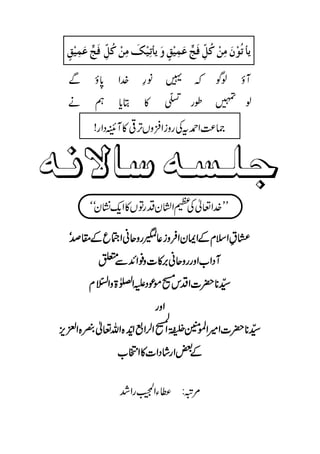 یأْتُوْنَ مِنْ کُلِّ فَجٍّ عَمِیْقٍ وَ یأتِیْکَ مِنْ کُلِّ فَجٍّ عَمِیْقٍ
آؤ لوگو کہ یہیں نورِ خدا پاؤ گے
لو تمہیں طور تسلّی کا بتایا ہم نے
جماعت احمدیہ کی روز افزوں ترقی کا آئینہ دار!
جلسہ سالانہ
’’خدا تعالیٰ کی عظیم الشان قدرتوں کا ایک نشان‘‘
عشاقِ اسلام کے ایمان افروز عالمگیر روحانی اجتماع کے مقاصد،
آداب اور روحانی برکات و فوائد سے متعلق
سیّدنا حضرت اقدس مسیح موعود علیہ الصلوٰۃ والسلام
اور
سیّدنا حضرت امیر المؤمنین خلیفۃ المسیح الرابع ایّدہ اللہ تعالیٰ بنصرہ العزیز
کے بعض ارشادات کا انتخاب
مرتبہ: عطاء المجیب راشد